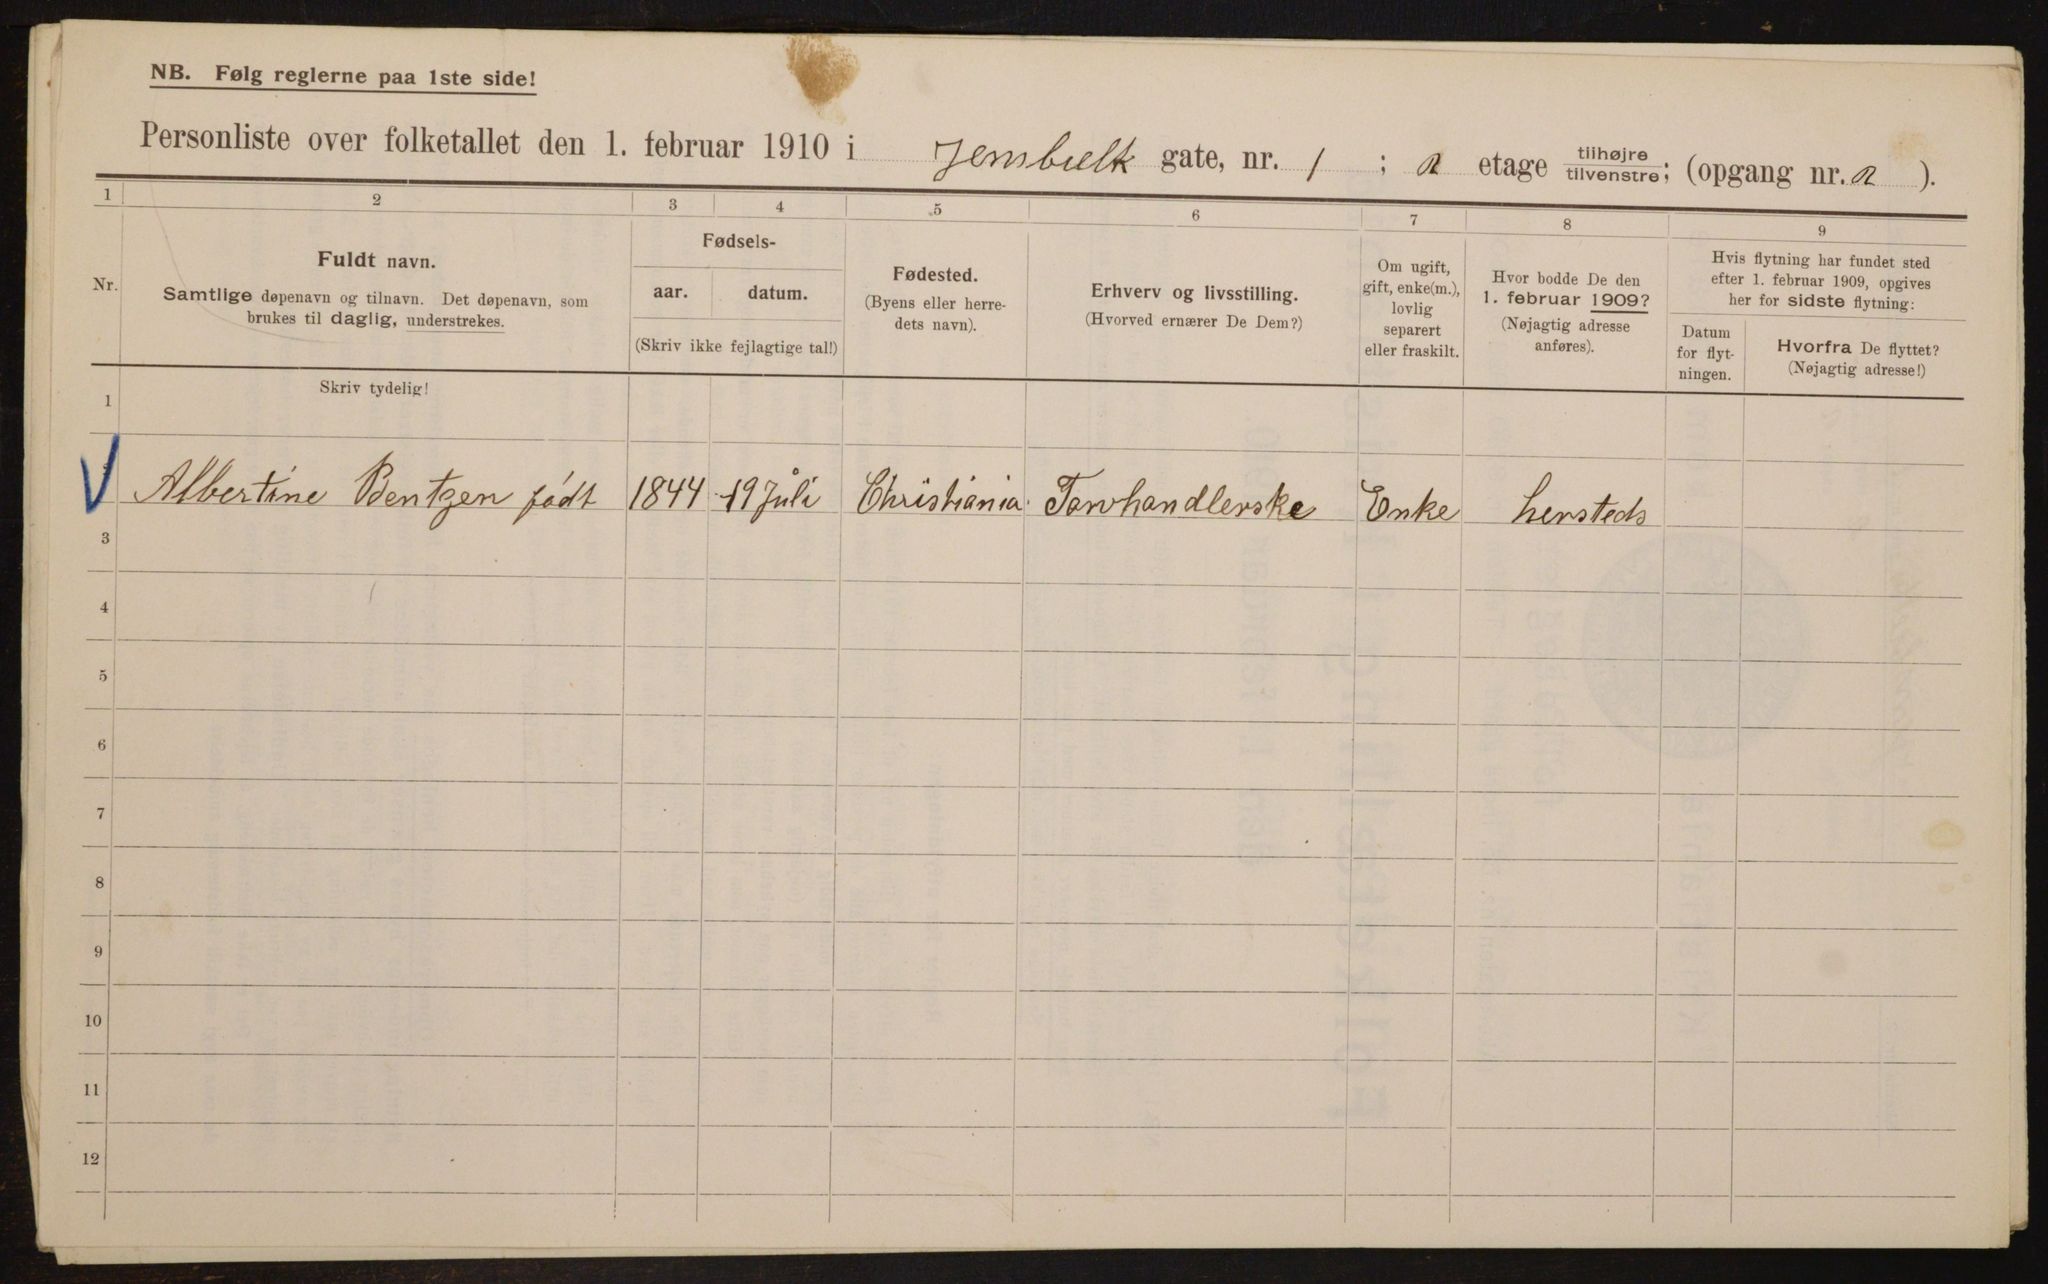 NB. Følg reglerne paa 1ste side!
Personliste over folketallet den 1. februar 1910 i Jensbielk gate, nr. 1 ; 2 etage tilhøjre tilvenstre; (opgang nr. 2 ).
1 2 3 4 5 6 7 8 9
Nr.
Fuldt navn.
Samtlige døpenavn og tilnavn. Det døpenavn, som
brukes til daglig, understrekes.
Skriv tydelig!
Fødsels-
aar. datum.
(Skriv ikke fejlagtige tal!)
Fødested.
(Byens eller herre-
dets navn).
Erhverv og livsstilling.
(Hvorved ernærer De Dem?)
Om ugift,
gift, enke(m.),
lovlig
separert
eller fraskilt.
Hvor bodde De den
1. februar 1909?
(Nøjagtig adresse
anføres).
Hvis flytning har fundet sted
efter 1. februar 1909, opgives
her for sidste flytning:
Datum
for flyt-
ningen.
Hvorfra De flyttet?
(Nøjagtig adresse!)
1
Albertine Bentzen født 1844 19 Juli Christiania Torvhandlerske Enke hersteds
3
4
5
6
7
8
9
10
11
12